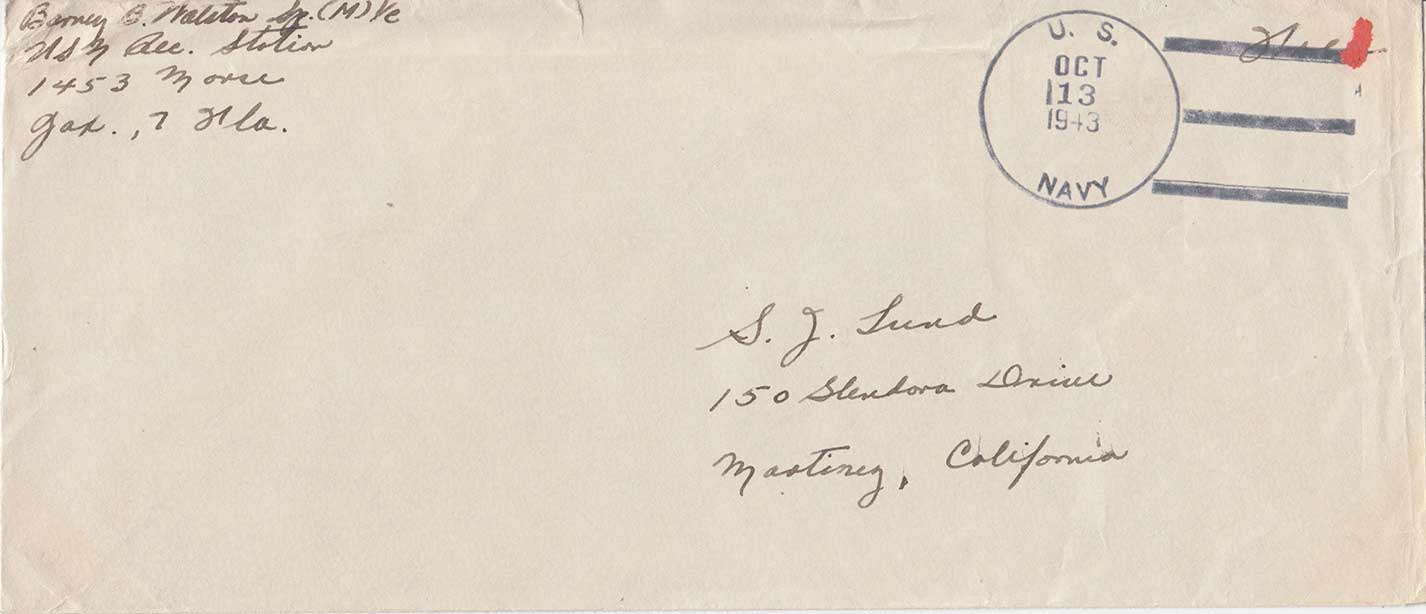 Barney B. Walston Sp. (M) 1/c
USN Rec. Station
1453 Morse
Jax., 7 Fla.
U. S.
OCT
13
1943
NAVY
Free
S. J. Lund
150 Glendora Drive
Martinez, California